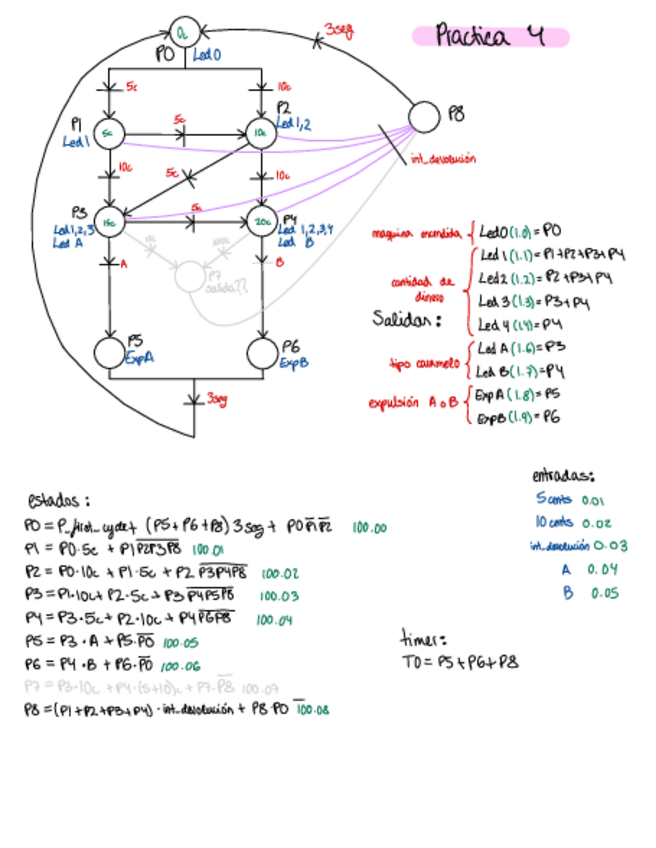 Practica 4
3seg
0c
P0 Led0
5c
10c
P1
Led1
5c
5c
P2
Led1,2
10c
P8
int_devolución
10c
5c
10c
P3
Led1,2,3
Led A
15c
5c
20c
P4
Led 1,2,3,4
Led B
A
P7
salida??
B
P5
ExpA
P6
ExpB
3seg
maquina encendida
Led0 (1.0) = P0
cantidad de dinero
Led 1 (1.1) = P1+P2+P3+P4
Led2 (1.2) = P2+P3+P4
Led 3 (1.3) = P3+P4
Salidas:
Led 4 (1.4) = P4
tipo caramelo
Led A (1.6) = P3
Led B (1.7) = P4
expulsión A o B
ExpA (1.8) = P5
ExpB (1.9) = P6
entradas:
5 cents 0.01
10 cents 0.02
int_devolución 0.03
A 0.04
B 0.05
estados:
P0 = P_first_cycle + (P5+P6+P8) 3seg + P0 P̅1̅ P̅2̅ 100.00
P1 = P0·5c + P1 P̅2̅P̅3̅P̅8̅ 100.01
P2 = P0·10c + P1·5c + P2 P̅3̅P̅4̅P̅8̅ 100.02
P3 = P1·10c + P2·5c + P3 P̅4̅P̅5̅P̅8̅ 100.03
P4 = P3·5c + P2·10c + P4 P̅6̅P̅8̅ 100.04
P5 = P3·A + P5·P̅0̅ 100.05
P6 = P4·B + P6·P̅0̅ 100.06
P7 = P3·10c + P4·(5+10)c + P7·P̅8̅ 100.07
P8 = (P1+P2+P3+P4)·int_devolución + P8·P̅0̅ 100.08
timer:
T0 = P5+P6+P8